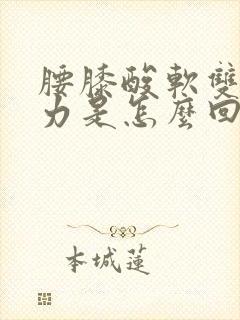 腰膝酸軟雙
力是怎麼回
本城蓮